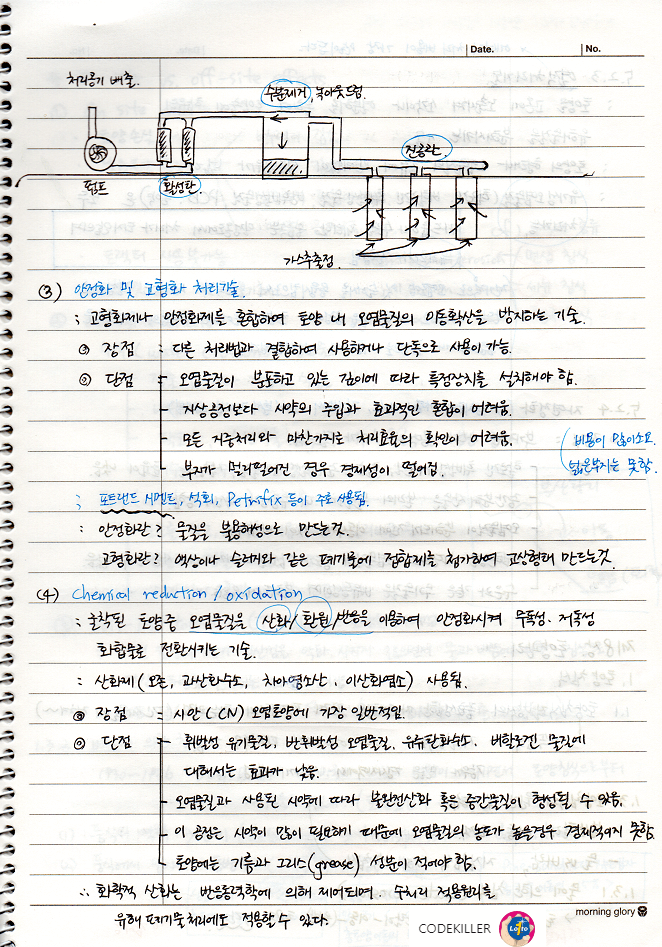 Date. No.
처리공기 배출.
수분제거, 녹아웃드럼.
진공관.
펌프 활성탄.
가스추출정.
(3) 안정화 및 고형화 처리기술.
: 고형화제나 안정화제를 혼합하여 토양 내 오염물질의 이동확산을 방지하는 기술.
장점 : 다른 처리법과 결합하여 사용하거나 단독으로 사용이 가능.
단점 - 오염물질이 분포하고 있는 깊이에 따라 특정장치를 설치해야 함.
- 지상공정보다 시약의 주입과 효과적인 혼합이 어려움.
- 모든 지중처리와 마찬가지로 처리효율의 확인이 어려움.
- 부지가 멀리떨어진 경우 경제성이 떨어짐.
비용이 많이소요.
넓은부지는 못함.
; 포트랜드 시멘트, 석회, Petrifix 등이 주로 사용됨.
: 안정화란? 물질을 불용해성으로 만드는것.
고형화란? 액상이나 슬러지와 같은 폐기물에 접합제를 첨가하여 고상형태 만드는것.
(4) Chemical reduction / oxidation
: 굴착된 토양중 오염물질을 산화/환원/반응을 이용하여 안정화시켜 무독성·저독성
화합물로 전환시키는 기술.
: 산화제(오존, 과산화수소, 차아염소산, 이산화염소) 사용됨.
장점 : 시안(CN) 오염토양에 가장 일반적임.
단점 - 휘발성 유기물질, 반휘발성 오염물질, 유류탄화수소, 비할로겐 물질에
대해서는 효과가 낮음.
- 오염물질과 사용된 시약에 따라 불완전산화 혹은 중간물질이 형성될 수 있음.
- 이 공정은 시약이 많이 필요하기 때문에 오염물질의 농도가 높을경우 경제적이지 못함.
- 토양에는 기름과 그리스(grease) 성분이 적어야 함.
∴ 화학적 산화는 반응동력학에 의해 제어되며, 수처리 적용원리를
유해 폐기물처리에도 적용할 수 있다.
morning glory
CODEKILLER